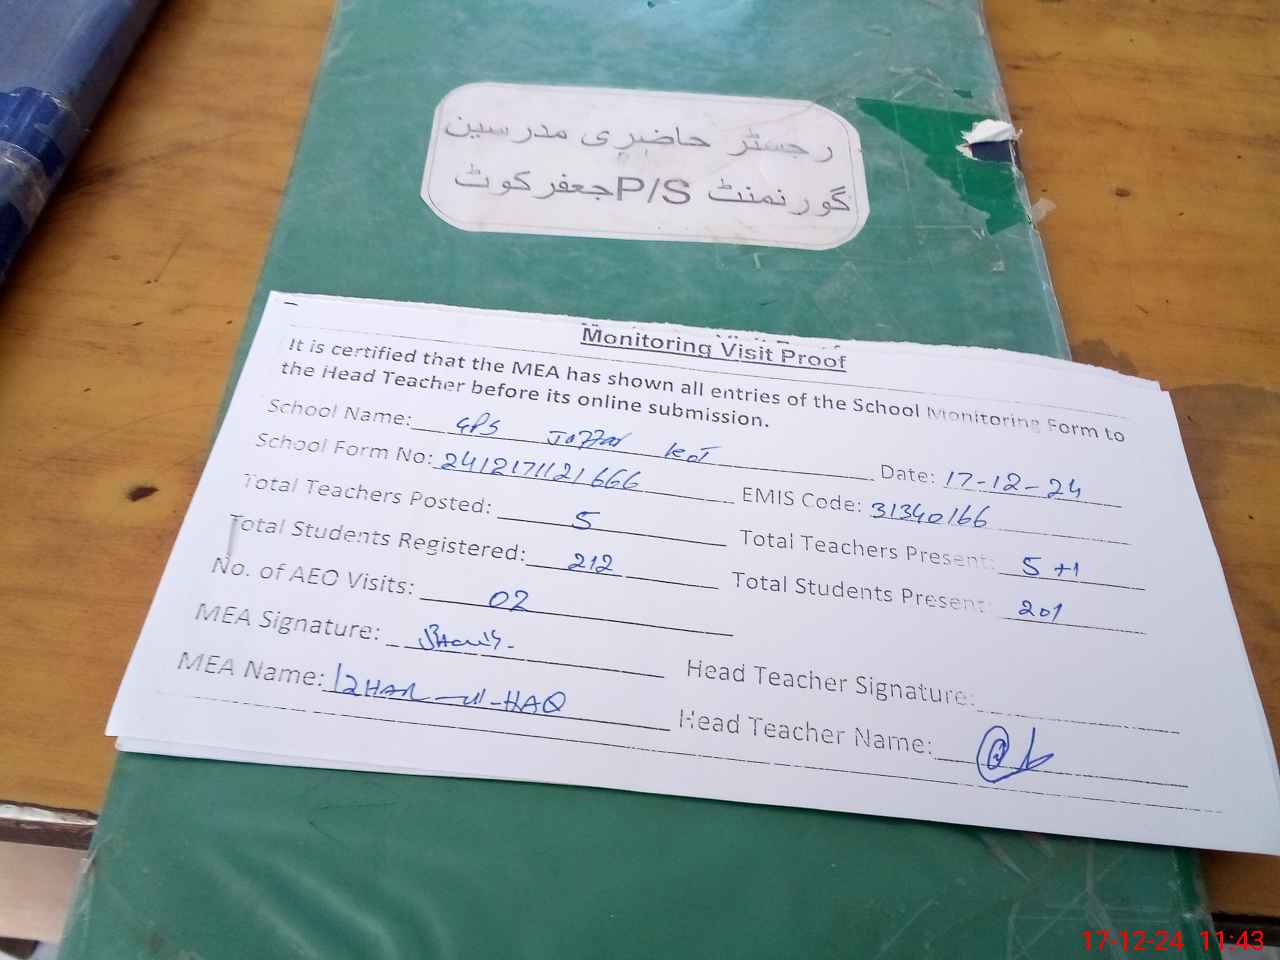 رجسٹر حاضری مدرسین
گورنمنٹ P/S جعفرکوٹ
Monitoring Visit Proof
It is certified that the MEA has shown all entries of the School Monitoring Form to
the Head Teacher before its online submission.
School Name: GPS Jaffar Kot Date: 17-12-24
School Form No: 2412171121666 EMIS Code: 31340166
Total Teachers Posted: 5 Total Teachers Present: 5+1
Total Students Registered: 212 Total Students Present: 201
No. of AEO Visits: 02
MEA Signature: Head Teacher Signature:
MEA Name: IZHAR-ul-HAQ Head Teacher Name:
17-12-24 11:43